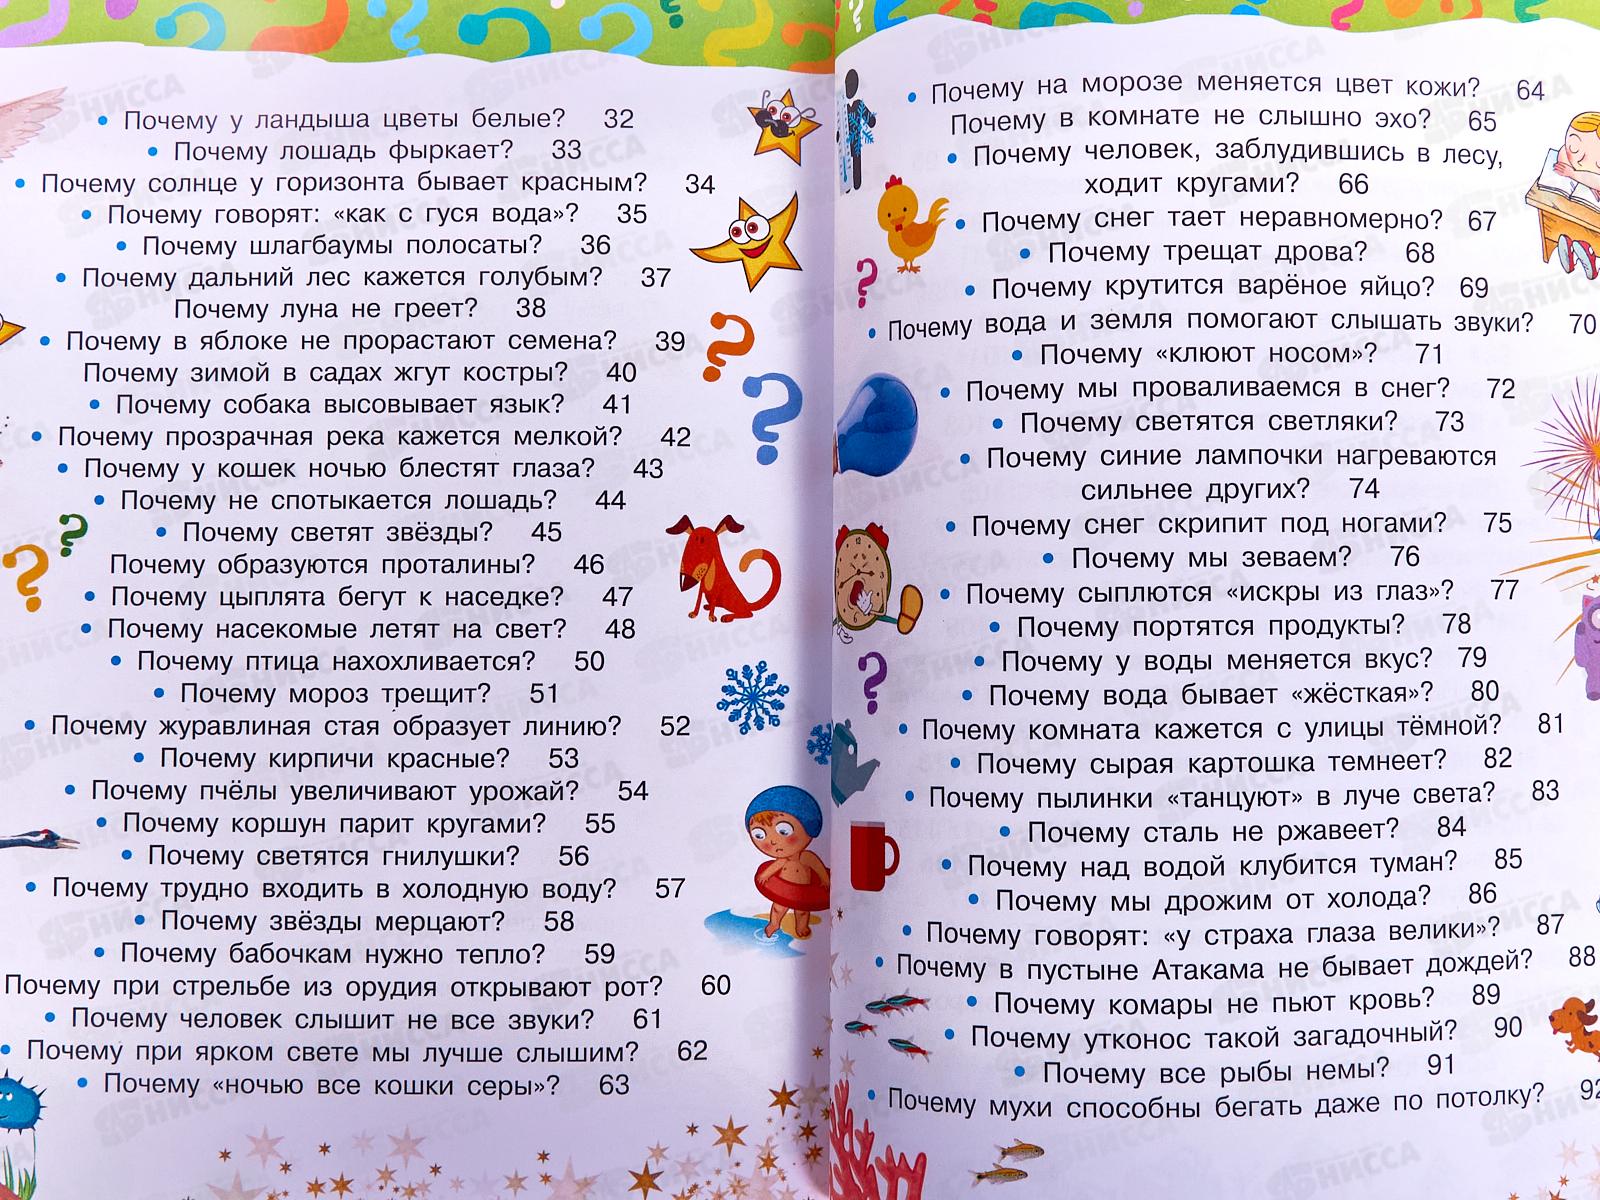 • Почему у ландыша цветы белые? 32
• Почему лошадь фыркает? 33
• Почему солнце у горизонта бывает красным? 34
• Почему говорят: «как с гуся вода»? 35
• Почему шлагбаумы полосаты? 36
• Почему дальний лес кажется голубым? 37
Почему луна не греет? 38
• Почему в яблоке не прорастают семена? 39
Почему зимой в садах жгут костры? 40
• Почему собака высовывает язык? 41
• Почему прозрачная река кажется мелкой? 42
• Почему у кошек ночью блестят глаза? 43
• Почему не спотыкается лошадь? 44
• Почему светят звёзды? 45
Почему образуются проталины? 46
• Почему цыплята бегут к наседке? 47
• Почему насекомые летят на свет? 48
• Почему птица нахохливается? 50
• Почему мороз трещит? 51
• Почему журавлиная стая образует линию? 52
• Почему кирпичи красные? 53
• Почему пчёлы увеличивают урожай? 54
• Почему коршун парит кругами? 55
• Почему светятся гнилушки? 56
• Почему трудно входить в холодную воду? 57
• Почему звёзды мерцают? 58
• Почему бабочкам нужно тепло? 59
Почему при стрельбе из орудия открывают рот? 60
• Почему человек слышит не все звуки? 61
• Почему при ярком свете мы лучше слышим? 62
• Почему «ночью все кошки серы»? 63
• Почему на морозе меняется цвет кожи? 64
Почему в комнате не слышно эхо? 65
• Почему человек, заблудившись в лесу,
ходит кругами? 66
• Почему снег тает неравномерно? 67
• Почему трещат дрова? 68
• Почему крутится варёное яйцо? 69
• Почему вода и земля помогают слышать звуки? 70
• Почему «клюют носом»? 71
• Почему мы проваливаемся в снег? 72
• Почему светятся светляки? 73
• Почему синие лампочки нагреваются
сильнее других? 74
• Почему снег скрипит под ногами? 75
• Почему мы зеваем? 76
• Почему сыплются «искры из глаз»? 77
• Почему портятся продукты? 78
• Почему у воды меняется вкус? 79
• Почему вода бывает «жёсткая»? 80
• Почему комната кажется с улицы тёмной? 81
• Почему сырая картошка темнеет? 82
• Почему пылинки «танцуют» в луче света? 83
• Почему сталь не ржавеет? 84
• Почему над водой клубится туман? 85
• Почему мы дрожим от холода? 86
• Почему говорят: «у страха глаза велики»? 87
• Почему в пустыне Атакама не бывает дождей? 88
• Почему комары не пьют кровь? 89
• Почему утконос такой загадочный? 90
• Почему все рыбы немы? 91
• Почему мухи способны бегать даже по потолку? 92